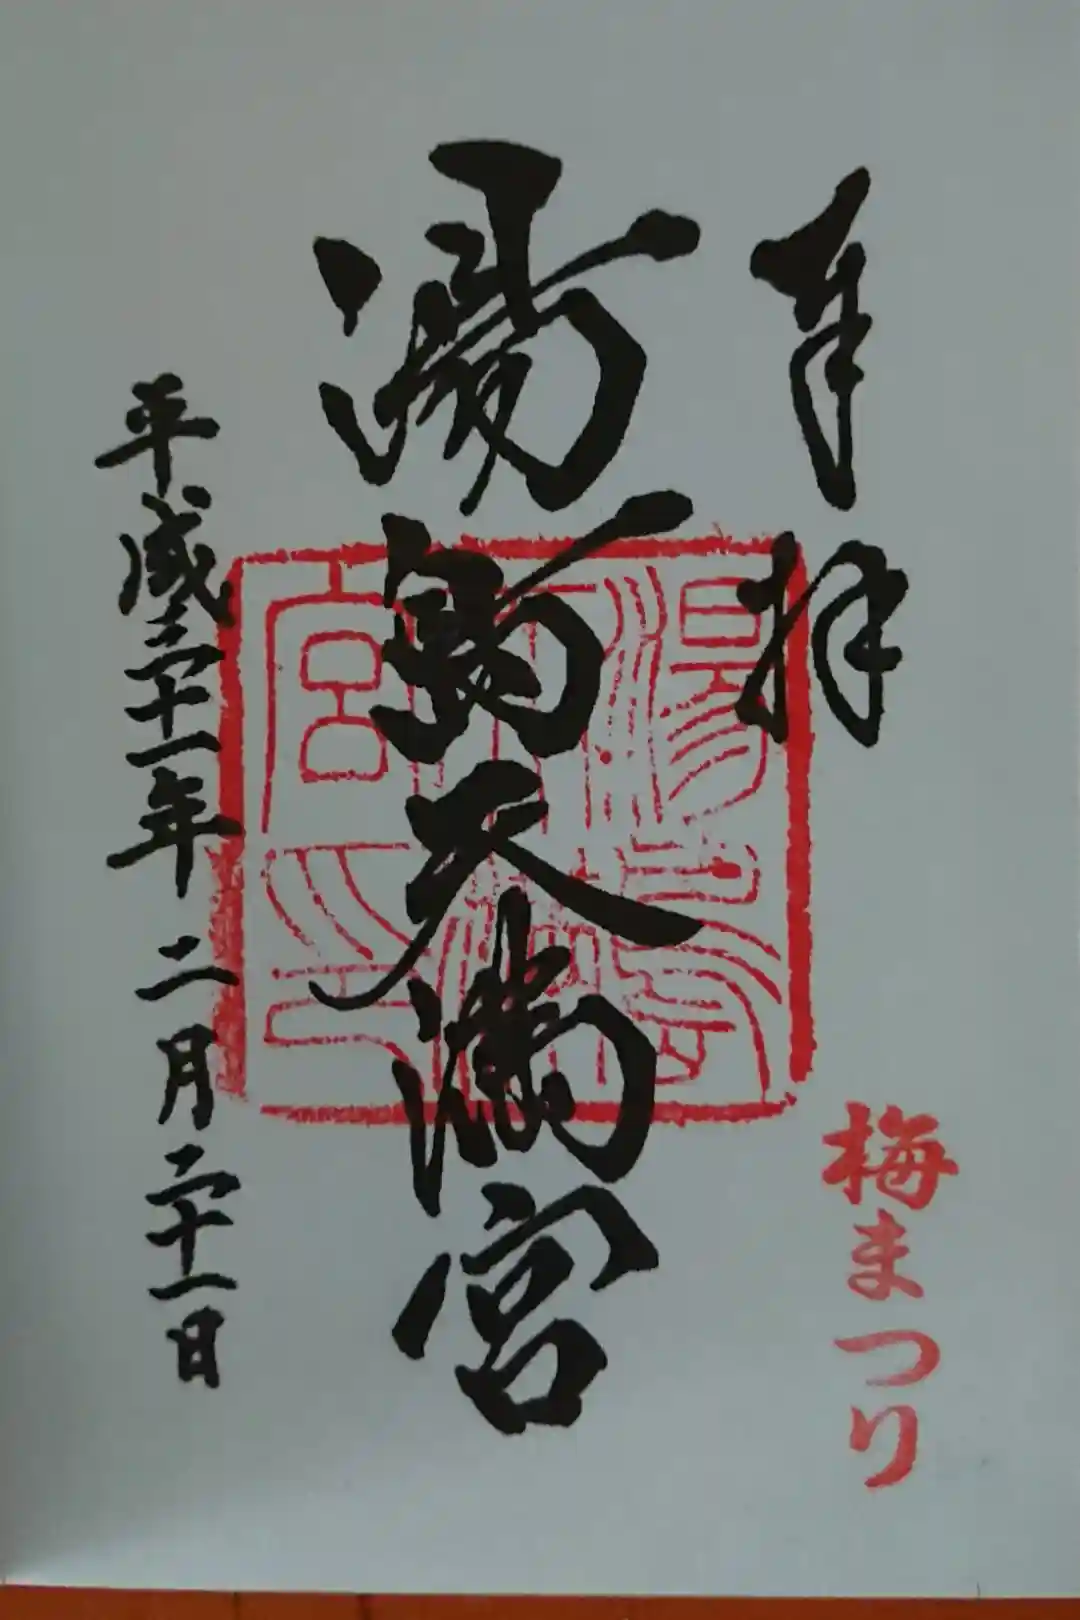 奉拝
梅まつり
湯島天満宮
平成三十一年二月二十一日